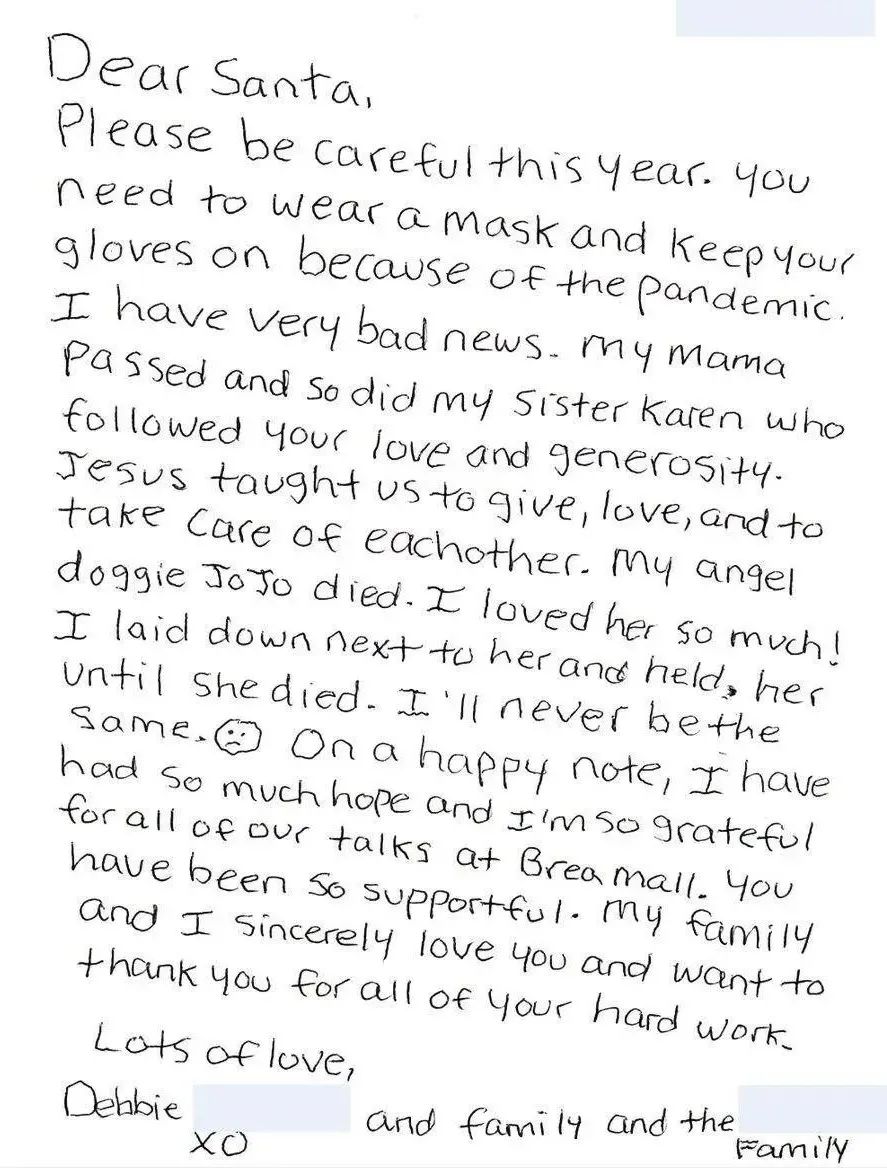 Dear Santa,
Please be careful this year. you
need to wear a mask and keep your
gloves on because of the pandemic.
I have very bad news. my mama
passed and so did my sister Karen who
followed your love and generosity.
Jesus taught us to give, love, and to
take care of eachother. my angel
doggie JoJo died. I loved her so much!
I laid down next to her and held, her
until she died. I'll never be the
same. On a happy note, I have
had so much hope and I'm so grateful
for all of our talks at Brea mall. you
have been so supportful. my family
and I sincerely love you and want to
thank you for all of your hard work.
Lots of love,
Debbie and family and the
XO Family